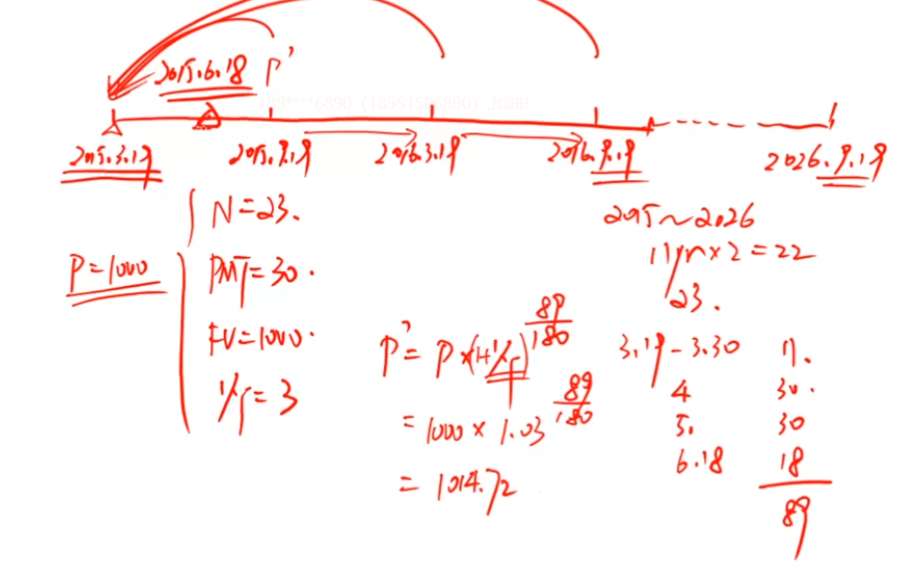 2015.6.18 P'
2015.3.19 2015.9.19 2016.3.19 2016.9.19 2026.9.19
N=23.
P=1000
PMT=30.
FV=1000.
I/Y=3
2015~2026
11yr×2=22
23.
P'=P×(1+I/Y)^(89/180)
=1000×1.03^(89/180)
=1014.72
3.19-3.30 11.
4 30.
5. 30
6.18 18
89